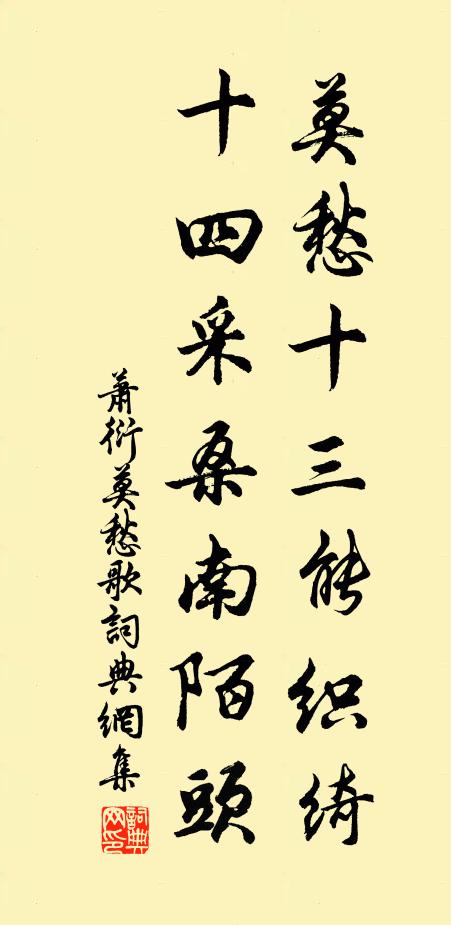 莫愁十三能织绮
十四采桑南陌頭
萧衍莫愁歌詞典網集
詞典网印